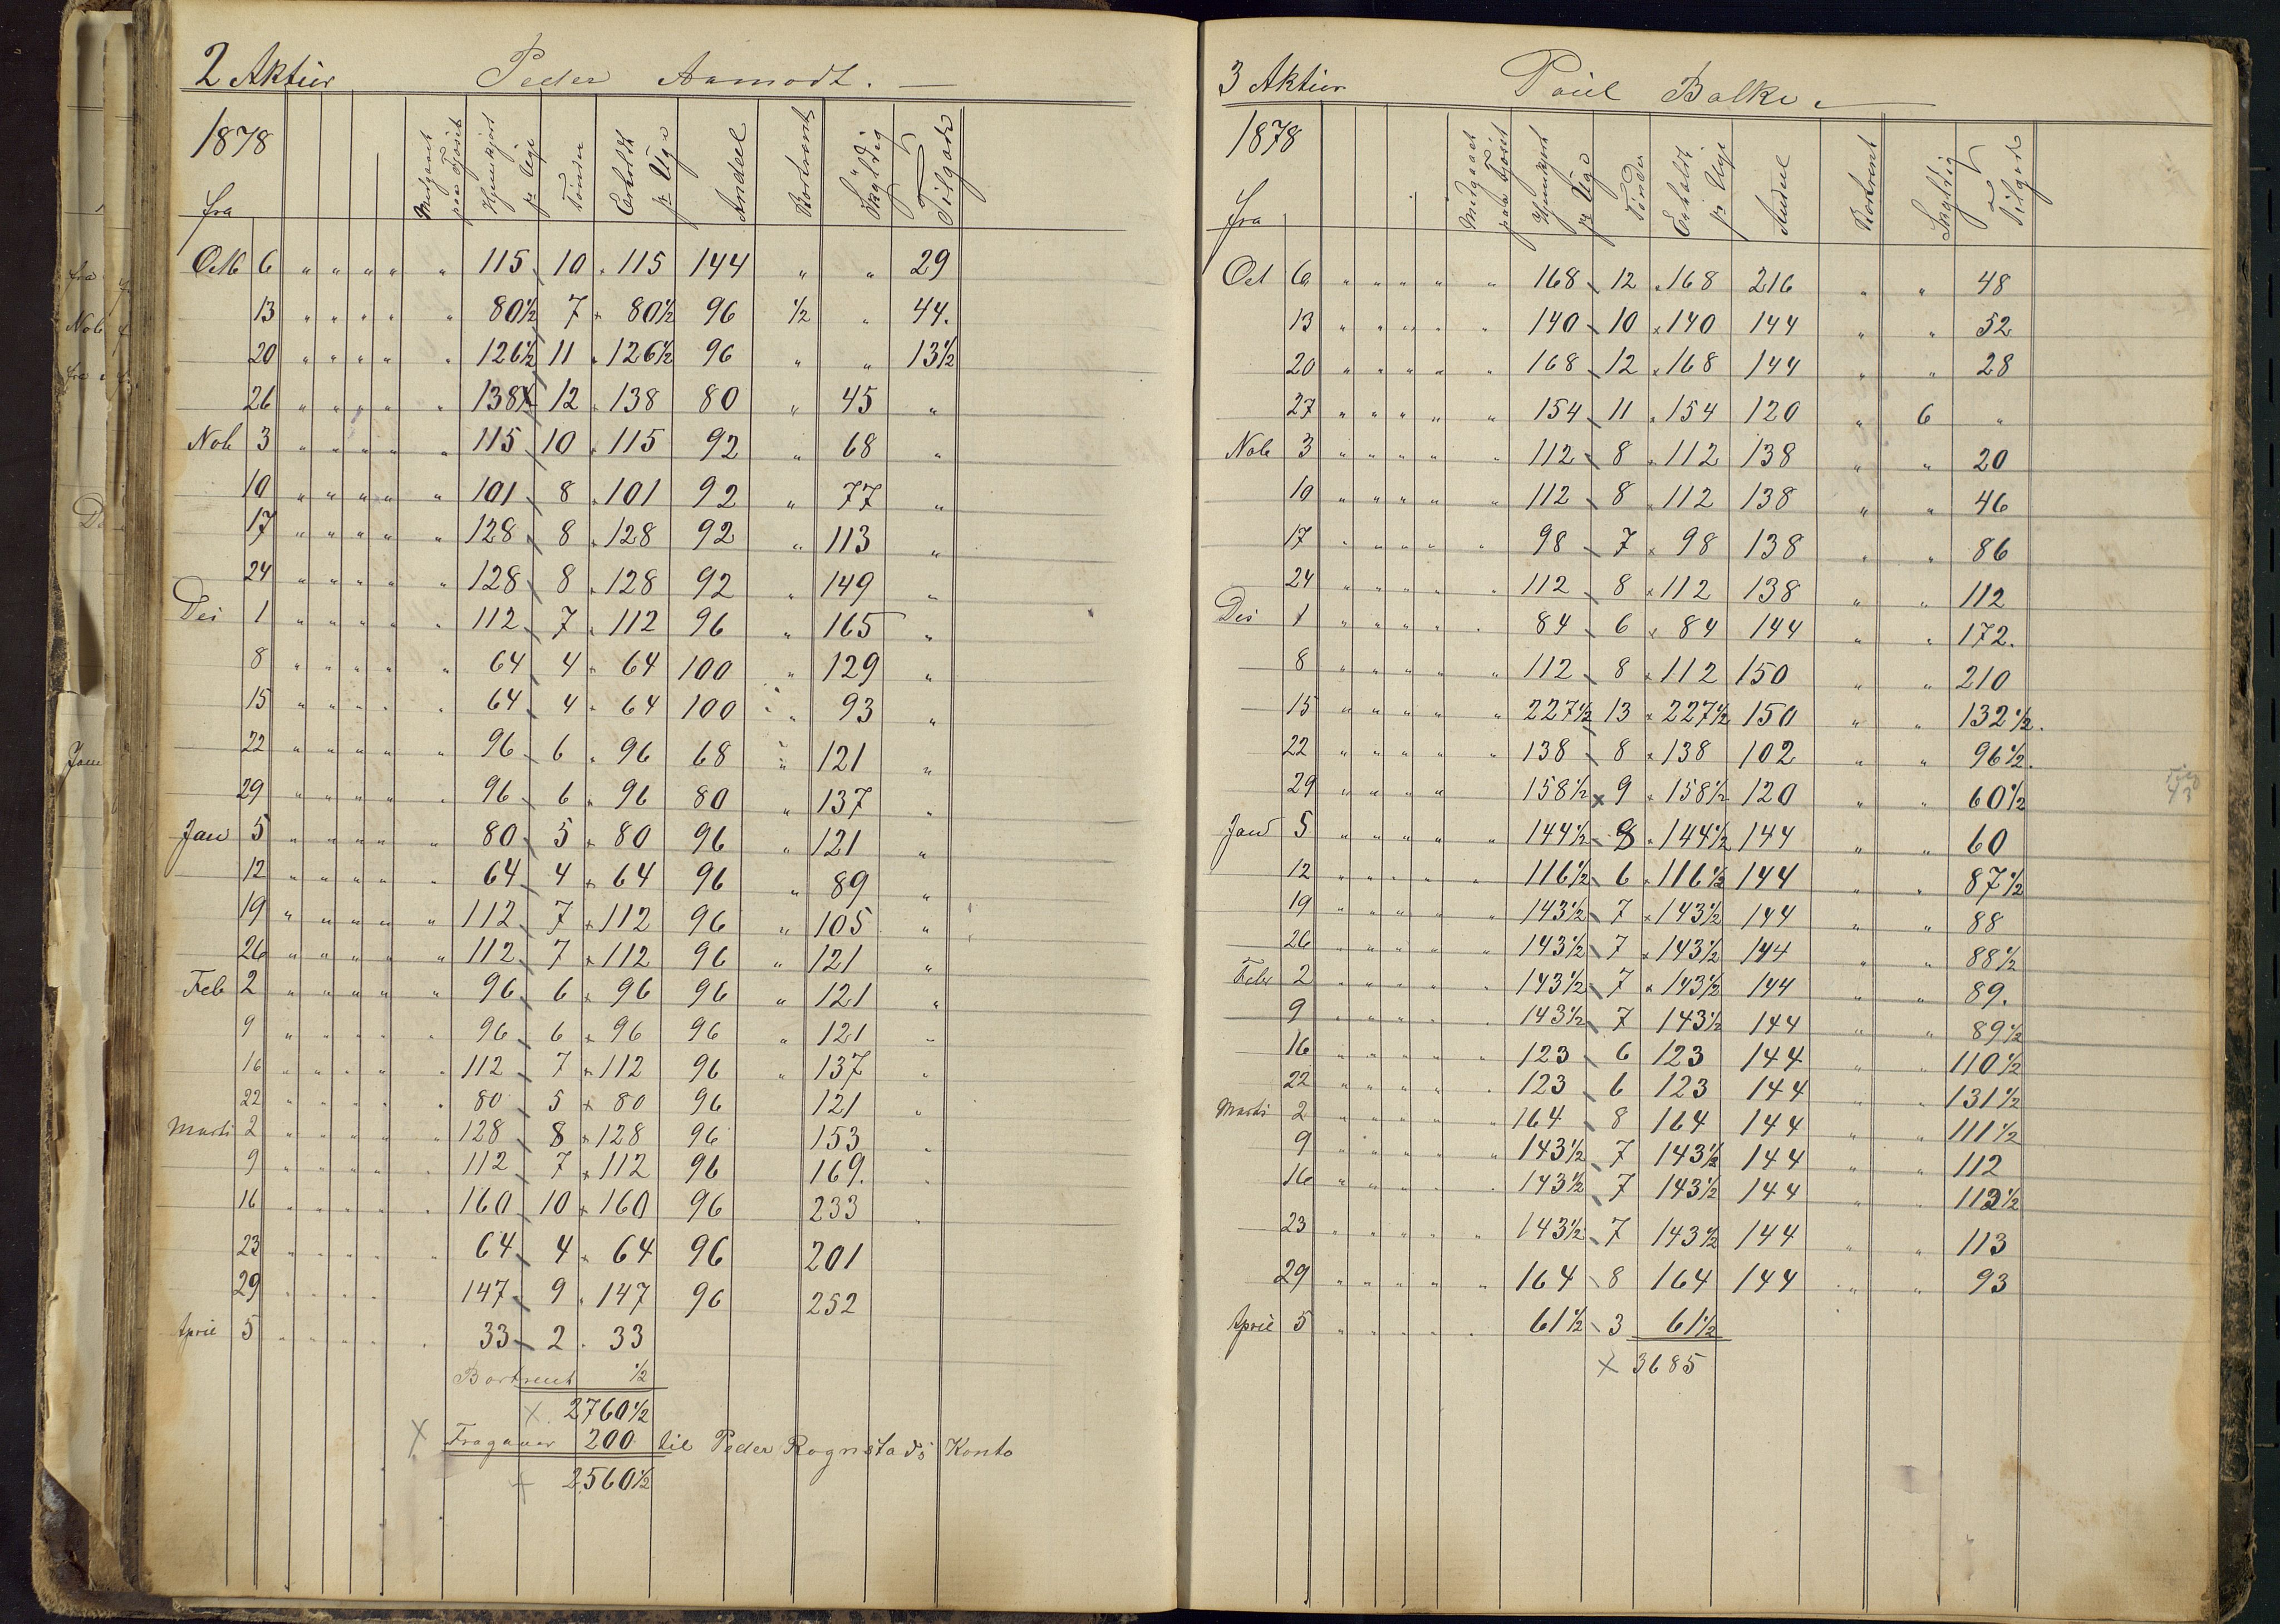 2 Aktier Peder Aamodt. —
1878 Medgaaet paa Fjøset Hjemkjørt pr Uge Tønder Erholdt pr Uge Andeel Bortrent Skyldig Tilgode
fra
Octb 6 " " " " " 115 10 " 115 144 " " 29
13 " " " " " 80½ 7 " 80½ 96 ½ " 44.
20 " " " " " 126½ 11 " 126½ 96 " " 13½
26 " " " " " 138 12 " 138 80 " 45 "
Nob 3 " " " " " 115 10 " 115 92 " 68 "
10 " " " " " 101 8 " 101 92 " 77 "
17 " " " " " 128 8 " 128 92 " 113 "
24 " " " " " 128 8 " 128 92 " 149 "
Des 1 " " " " " 112 7 " 112 96 " 165 "
8 " " " " " 64 4 " 64 100 " 129 "
15 " " " " " 64 4 " 64 100 " 93 "
22 " " " " " 96 6 " 96 68 " 121 "
29 " " " " " 96 6 " 96 80 " 137 "
Jan 5 " " " " " 80 5 " 80 96 " 121 "
12 " " " " " 64 4 " 64 96 " 89 "
19 " " " " " 112 7 " 112 96 " 105 "
26 " " " " " 112 7 " 112 96 " 121 "
Feb 2 " " " " " 96 6 " 96 96 " 121 "
9 " " " " " 96 6 " 96 96 " 121 "
16 " " " " " 112 7 " 112 96 " 137 "
22 " " " " " 80 5 " 80 96 121 "
Marts 2 " " " " " 128 8 " 128 96 153 "
9 " " " " " 112 7 " 112 96 169. "
16 " " " " " 160 10 " 160 96 233 "
23 " " " " " 64 4 " 64 96 201
29 " " " " 147 9 " 147 96 252
April 5 " " " " " 33 2 " 33
Bortrent ½
x 2760½
x Fragaaer 200 til Peder Rognstads Konto
+ 2560½
3 Aktier Paul Balke. —
1878 Medgaaet paa Fjøset Hjemkjørt pr Uge Tønder Erholdt pr Uge Andeel Bortrent Skyldig Tilgode
fra
Oct 6 " " " " " 168 12 " 168 216 " " 48
13 " " " " " 140 10 " 140 144 " " 52
20 " " " " " 168 12 " 168 144 " " 28
27 " " " " " 154 11 " 154 120 " 6 "
Nob 3 " " " " " 112 8 " 112 138 " " 20
10 " " " " " 112 8 " 112 138 " " 46
17 " " " " " 98 7 " 98 138 " " 86
24 " " " " " 112 8 " 112 138 " " 112
Des 1 " " " " " 84 6 " 84 144 " " 172.
8 " " " " " 112 8 " 112 150 " " 210
15 " " " " " 227½ 13 " 227½ 150 " " 132½.
22 " " " " " 138 8 " 138 102 " " 96½.
29 " " " " 158½ x 9 " 158½ 120 " " 60½
Jan 5 " " " " " 144½ 8 " 144½ 144 " " 60
12 " " " " " 116½ 6 " 116½ 144 " " 87½
19 " " " " " 143½ 7 " 143½ 144 " " 88
26 " " " " " 143½ 7 " 143½ 144 " " 88½
Febr 2 " " " " " 143½ 7 " 143½ 144 " " 89.
9 " " " " " 143½ 7 143½ 144 " " 89½
16 " " " " " 123 6 123 144 " " 110½
22 " " " " " 123 6 123 144 " " 131½
Marts 2 " " " " " 164 8 164 144 " " 111½
9 " " " " " 143½ 7 143½ 144 " " 112
16 " " " " " 143½ 7 143½ 144 " " 112½
23 " " " " " 143½ 7 143½ 144 " " 113
29 " " " " " 164 8 164 144 " " 93
April 5 " " " " " 61½ 3 61½
x 3685